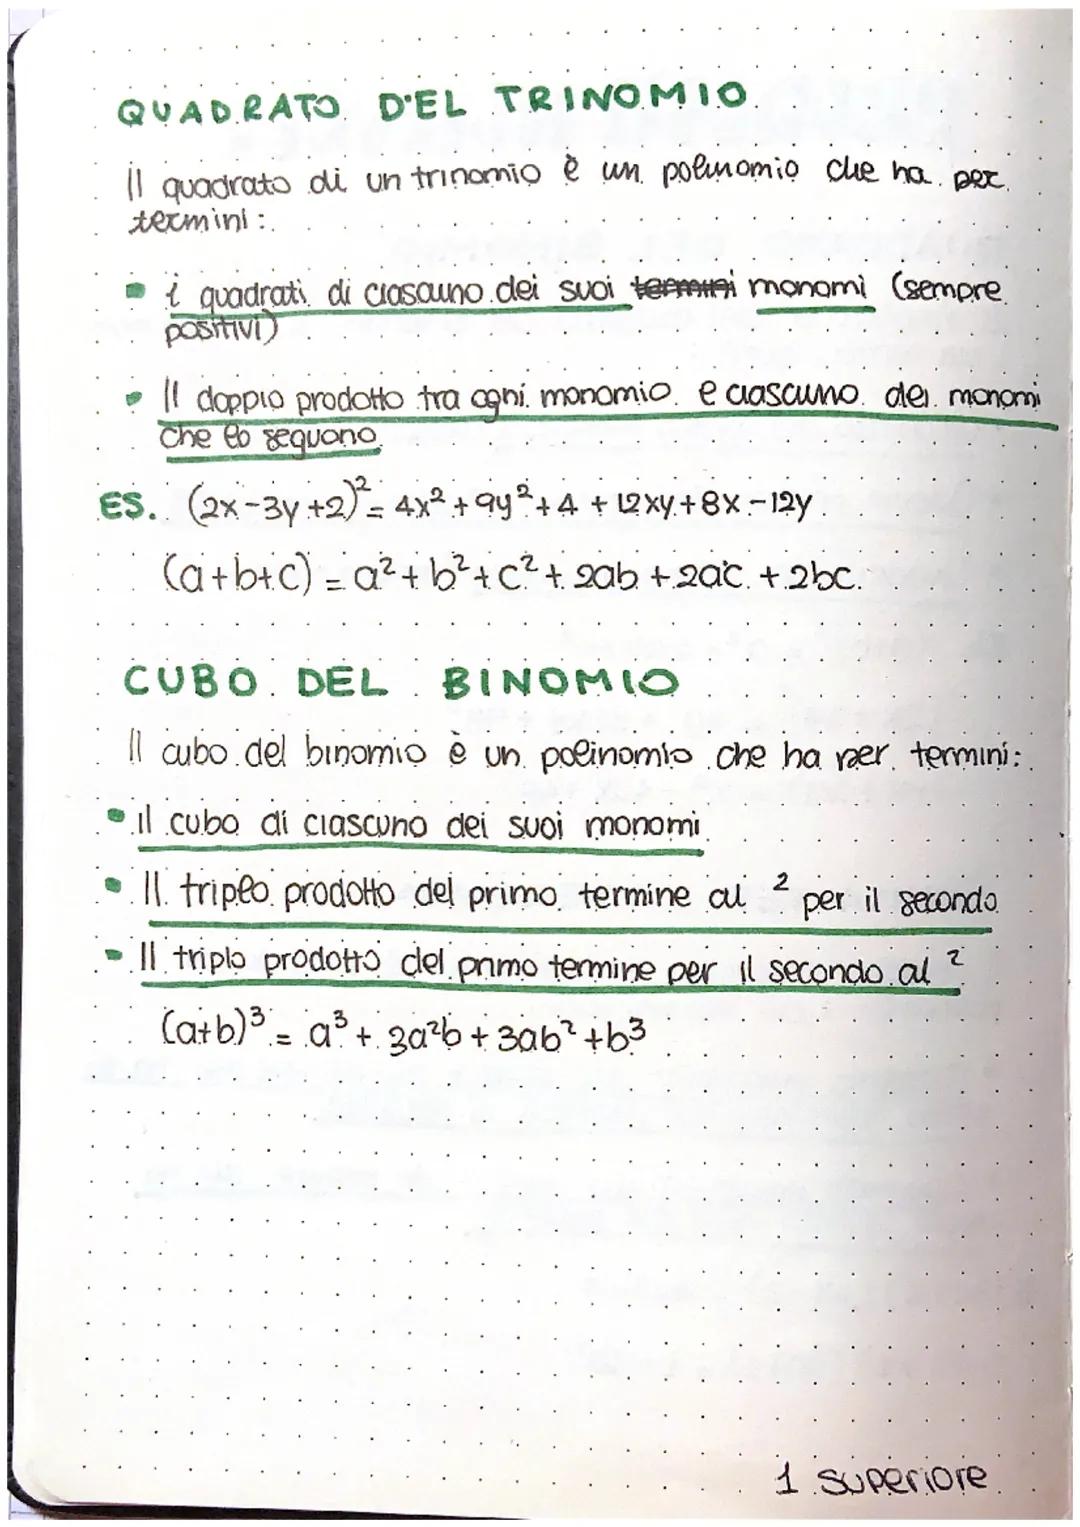 QUADRATO D'EL TRINOMIO
Il quadrato di un trinomio è un polinomio che ha per
termini:
• i quadrati di ciascuno dei suoi termini monomi (sempre
positivi)
• Il doppio prodotto tra ogni monomio e ciascuno dei monomi
che lo seguono
ES. (2x-3y+2)² = 4x² + 9y² + 4 + 12xy + 8x - 12y
(a+b+c) = a² + b² + c² + 2ab + 2ac + 2bc
CUBO DEL BINOMIO
Il cubo del binomio è un polinomio che ha per termini:
• il cubo di ciascuno dei suoi monomi
• Il triplo prodotto del primo termine al ² per il secondo
• Il triplo prodotto del primo termine per il secondo al ²
(a+b)³ = a³ + 3a²b + 3ab² + b³
1 superiore